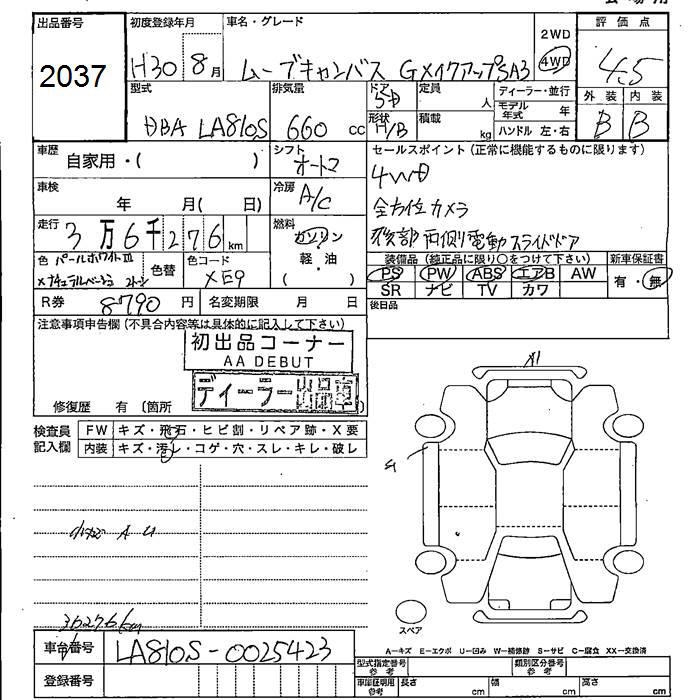 出品番号 初度登録年月 車名・グレード 2WD 評価点
2037 H30 8月 ムーブキャンバス GメイクアップSA3 4WD 4.5
外装 内装
B B
型式 排気量 ドア 定員 ディーラー・並行
DBA LA810S 660 cc 5D 人 モデル年式 年
形状 積載 ハンドル 左・右
H/B kg
車歴 自家用・( ) シフト オートマ セールスポイント(正常に機能するものに限ります)
4WD
車検 年 月( 日) 冷房 A/C 全方位カメラ
走行 3万6千276km 燃料 ガソリン 両側電動スライドドア
軽・油
( )
色 パールホワイトⅢ 色替 色コード 装備品(純正品に限り○をつけて下さい) 新車保証書
×ナチュラルベージュ 2トーン XE9 PS PW ABS エアB AW 有・無
SR ナビ TV カワ
R券 8790円 名変期限 月 日 後日品
注意事項申告欄(不具合内容等は具体的に記入して下さい)
初出品コーナー
AA DEBUT
ディーラー出品車
修復歴 有 〔箇所
検査員 FW キズ・飛石・ヒビ割・リペア跡・X要
記入欄 内装 キズ・汚レ・コゲ・穴・スレ・キレ・破レ
A1
A U
36276km
スペア
A−キズ E−エクボ U−凹み W−補修跡 S−サビ C−腐食 XX−交換済
車台番号 LA810S-0025423
型式指定番号 参考 類別区分番号 参考
登録番号 車庫証明用 参考 長さ 幅 高さ